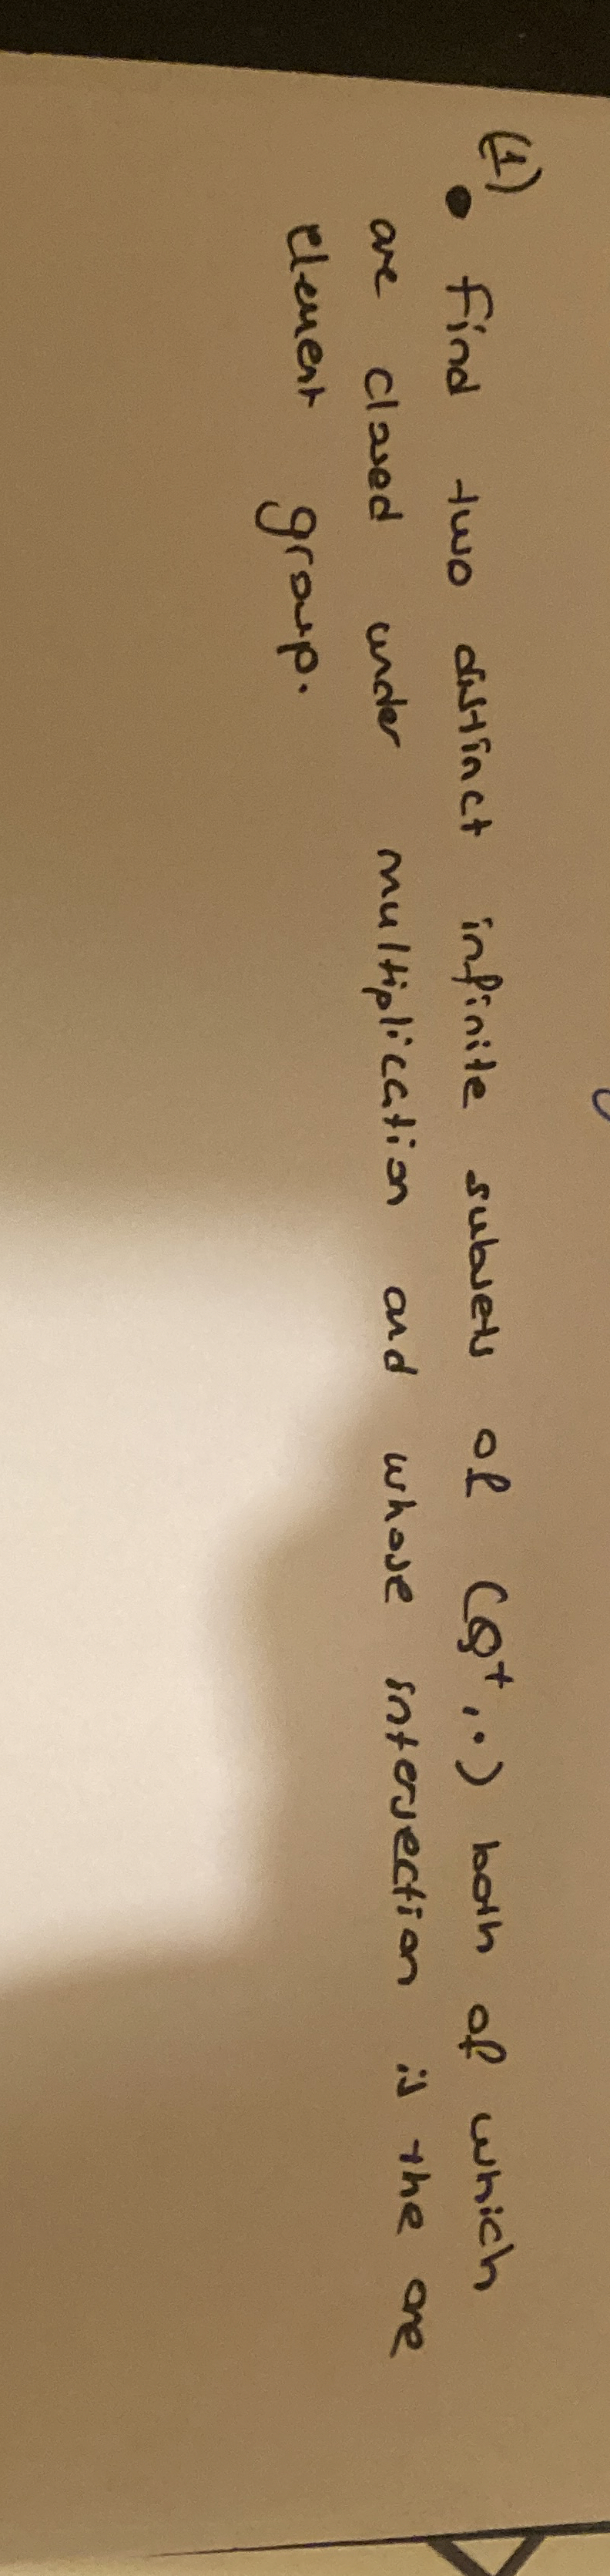 (1)
• Find two distinct infinite subsets of (Q⁺, ·) both of which
are closed under multiplication and whose intersection is the one
element group.